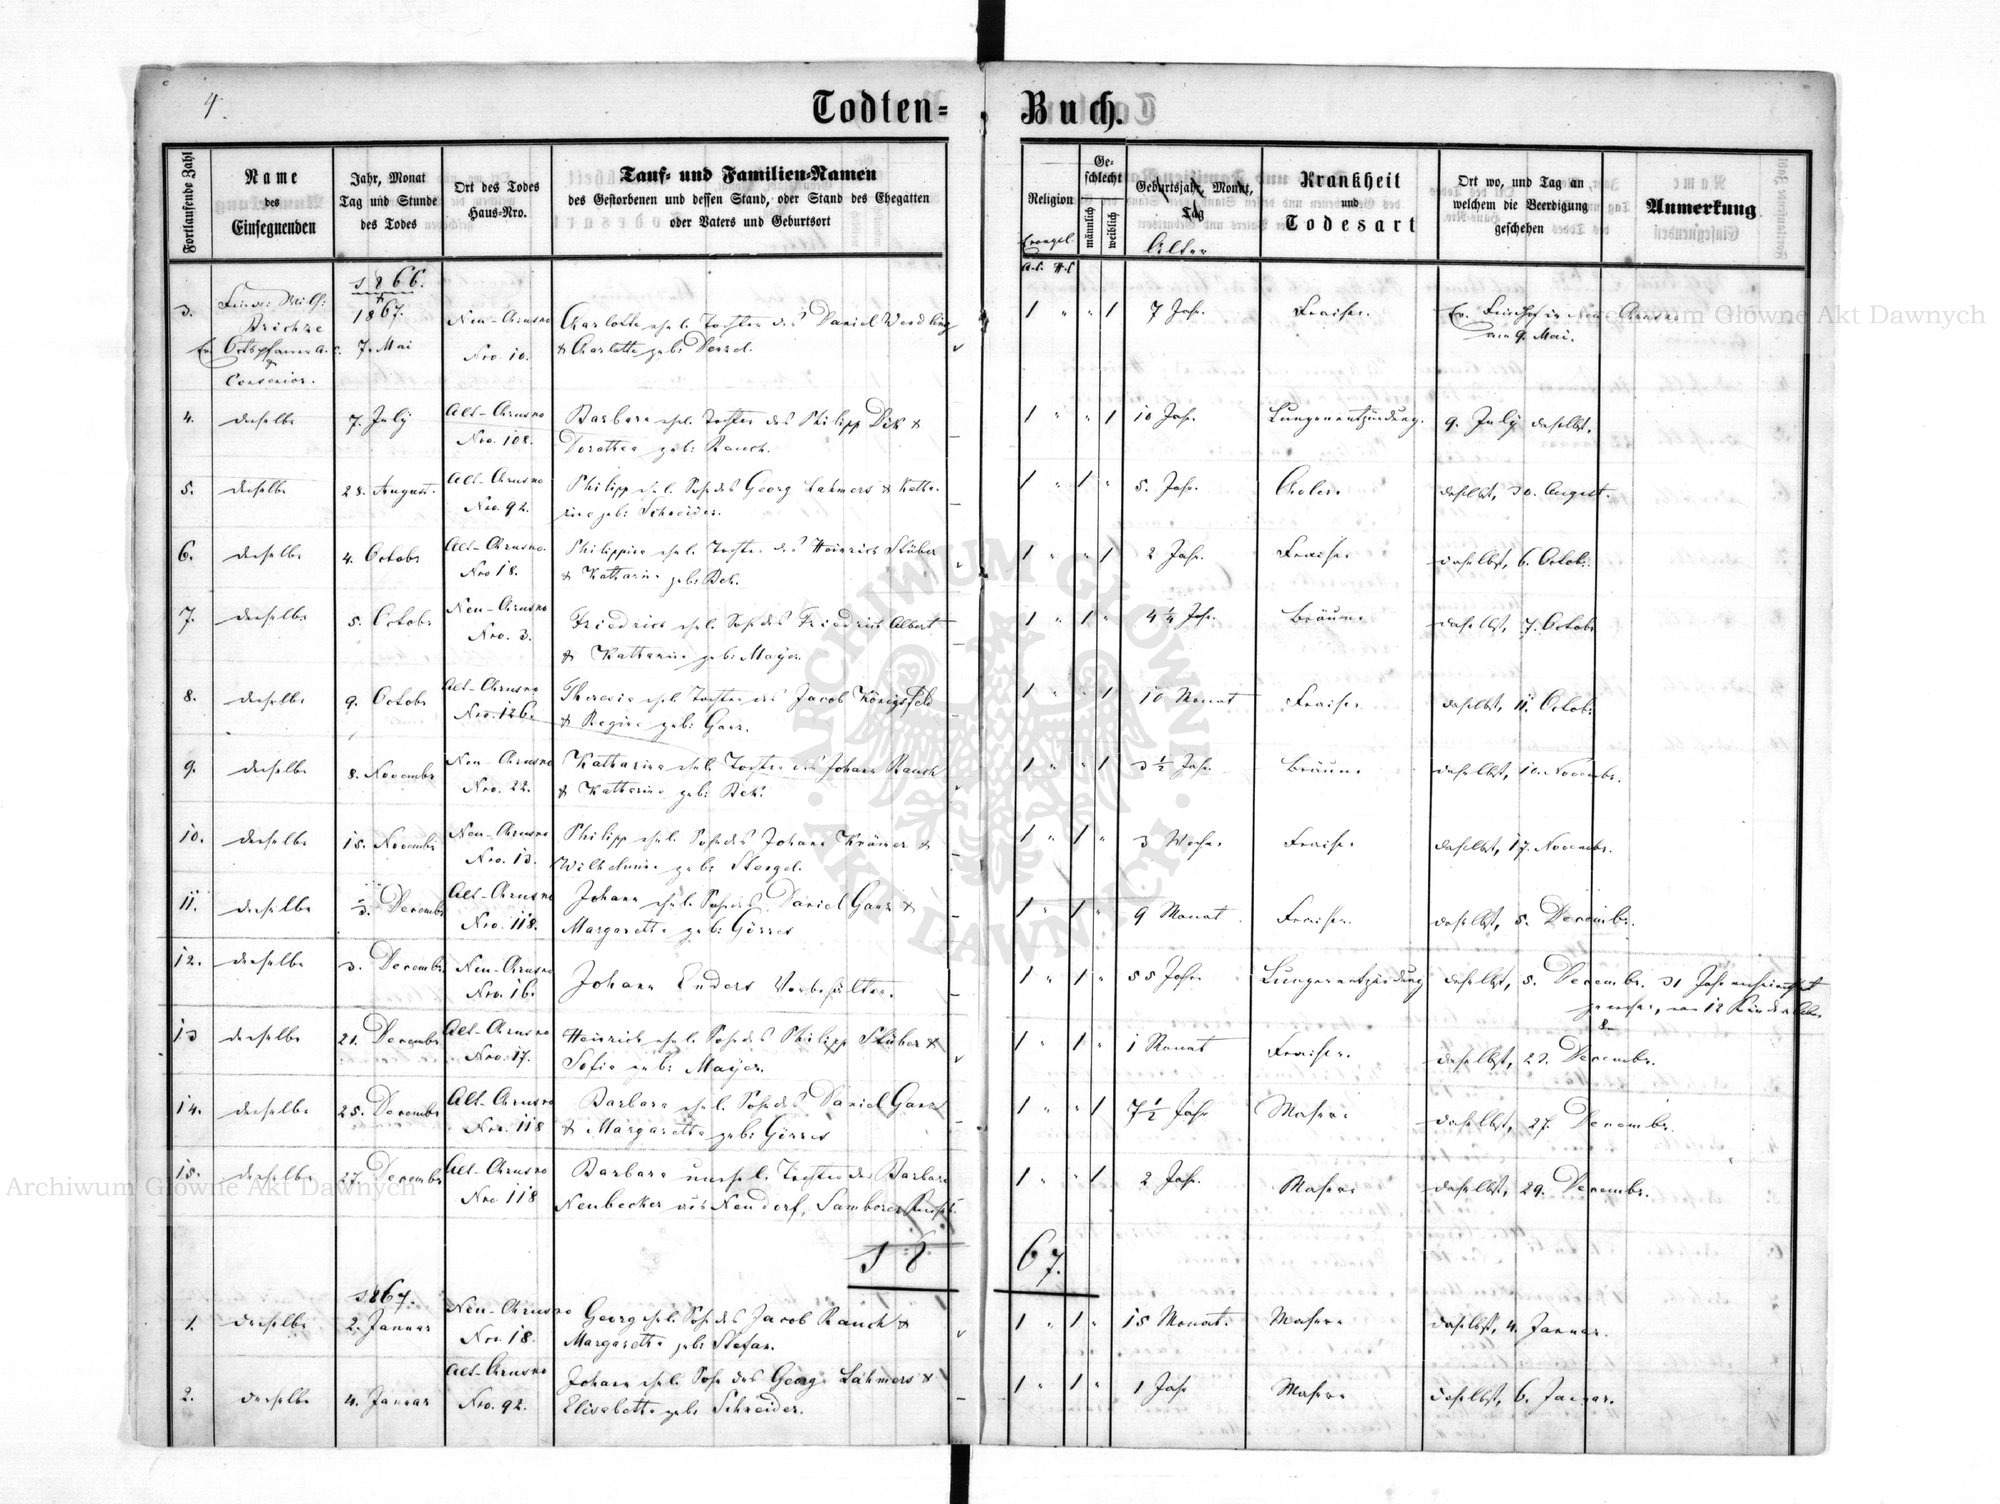 4.
Todten=Buch.
Fortlaufende Zahl
Name
des
Einsegnenden
Jahr, Monat
Tag und Stunde
des Todes
Ort des Todes
Haus-Nro.
Tauf- und Familien-Namen
des Gestorbenen und dessen Stand, oder Stand des Ehegatten
oder Vaters und Geburtsort
Religion
Evangel.
A.C. H.C.
Geschlecht
männlich
weiblich
Geburtsjahr, Monat,
Tag
Alter
Krankheit
und
Todesart
Ort wo, und Tag an
welchem die Beerdigung
geschehen
Anmerkung
1866.
3. 1867. Neu-Chrusno Charlotte ehel. Tochter des Daniel Wendling 1 " " 1 7 Jahr. Fraisen.
Ev. Ortspfarrer A. C. 7. Mai Nro. 10. & Charlotte geb: am 9. Mai.
Consenior.
4. derselbe 7. July Alt-Chrusno Barbara ehel. Tochter des Philipp Dik & 1 " " 1 10 Jahr. Lungenentzündung. 9. July daselbst.
Nro. 108. Dorothea geb: Rauch.
5. derselbe 28. August. Alt-Chrusno Philipp ehel. Sohn des Georg Lahmers & Katha- 1 " 1 " 5. Jahr. Cholera daselbst, 30. August.
Nro. 92. rina geb: Schneider.
6. derselbe 4. Octobr Alt-Chrusno Philippina ehel. Tochter des Heinrich Stüber 1 " " 1 2 Jahr. Fraisen daselbst, 6. Octobr.
Nro 18. & Katharina geb: Bek.
7. derselbe 5. Octobr Neu-Chrusno Friedrich ehel. Sohn des Friedrich Albert 1 " 1 " 4 ¼ Jahr. Bräune daselbst, 7. Octobr
Nro. 3. & Katharina geb: Mayer.
8. derselbe 9. Octobr Alt-Chrusno Theresia ehel. Tochter des Jacob Königsfeld 1 " " 1 10 Monat Fraisen daselbst, 11. Octobr.
Nro. 126. & Regina geb: Ganz.
9. derselbe 8. Novembr Neu-Chrusno Katharina ehel. Tochter des Johann Rauch 1 " " 1 3 ½ Jahr. Bräune daselbst, 10. Novembr.
Nro. 22. & Katharina geb: Bek.
10. derselbe 15. Novembr Neu-Chrusno Philipp ehel. Sohn des Johann Krämer & 1 " 1 " 3 Wochen Fraisen daselbst, 17. Novembr.
Nro. 13. Wilhelmina geb: Stengel.
11. derselbe 3. Decembr Alt-Chrusno Johann ehel. Sohn des Daniel Ganz & 1 " 1 " 9 Monat. Fraisen. daselbst, 5. Decembr.
Nro. 118. Margaretha geb: Görres
12. derselbe 3. Decembr Neu-Chrusno Johann Enders Vorbehälter. 1 " 1 " 55 Jahr. Lungenentzündung daselbst, 5. Decembr. 31 Jahr verheirathet
Nro. 16. gewesen, von 12 Kinder leben
8
13 derselbe 21. Decembr Alt-Chrusno Heinrich ehel. Sohn des Philipp Stüber & 1 " 1 " 1 Monat Fraisen. daselbst, 23. Decembr.
Nro. 17. Sofia geb: Mayer.
14. derselbe 25. Decembr Alt-Chrusno Barbara ehel. Sohn des Daniel Ganz 1 " " 1 7 ½ Jahr Masern daselbst, 27. Decembr.
Nro. 118 & Margaretha geb: Görres
15. derselbe 27. Decembr Alt-Chrusno Barbara unehel. Tochter der Barbara 1 " " 1 2 Jahr. Masern daselbst, 29. Decembr.
Nro 118 Neubecker aus Neudorf, Samborer
1867.
1867.
1. derselbe 2. Januar Neu-Chrusno Georg ehel. Sohn des Jacob Rauch & 1 " 1 " 15 Monat. Masern daselbst, 4. Januar.
Nro. 18. Margaretha geb: Stefan.
2. derselbe 4. Januar Alt-Chrusno Johann ehel. Sohn des Georg Lahmers & 1 " 1 " 1 Jahr Masern daselbst, 6. Januar.
Nro. 92. Elisabetha geb: Schneider.
Archiwum Główne Akt Dawnych
Archiwum Główne Akt Dawnych
ARCHIWUM GŁÓWNE
AKT DAWNYCH